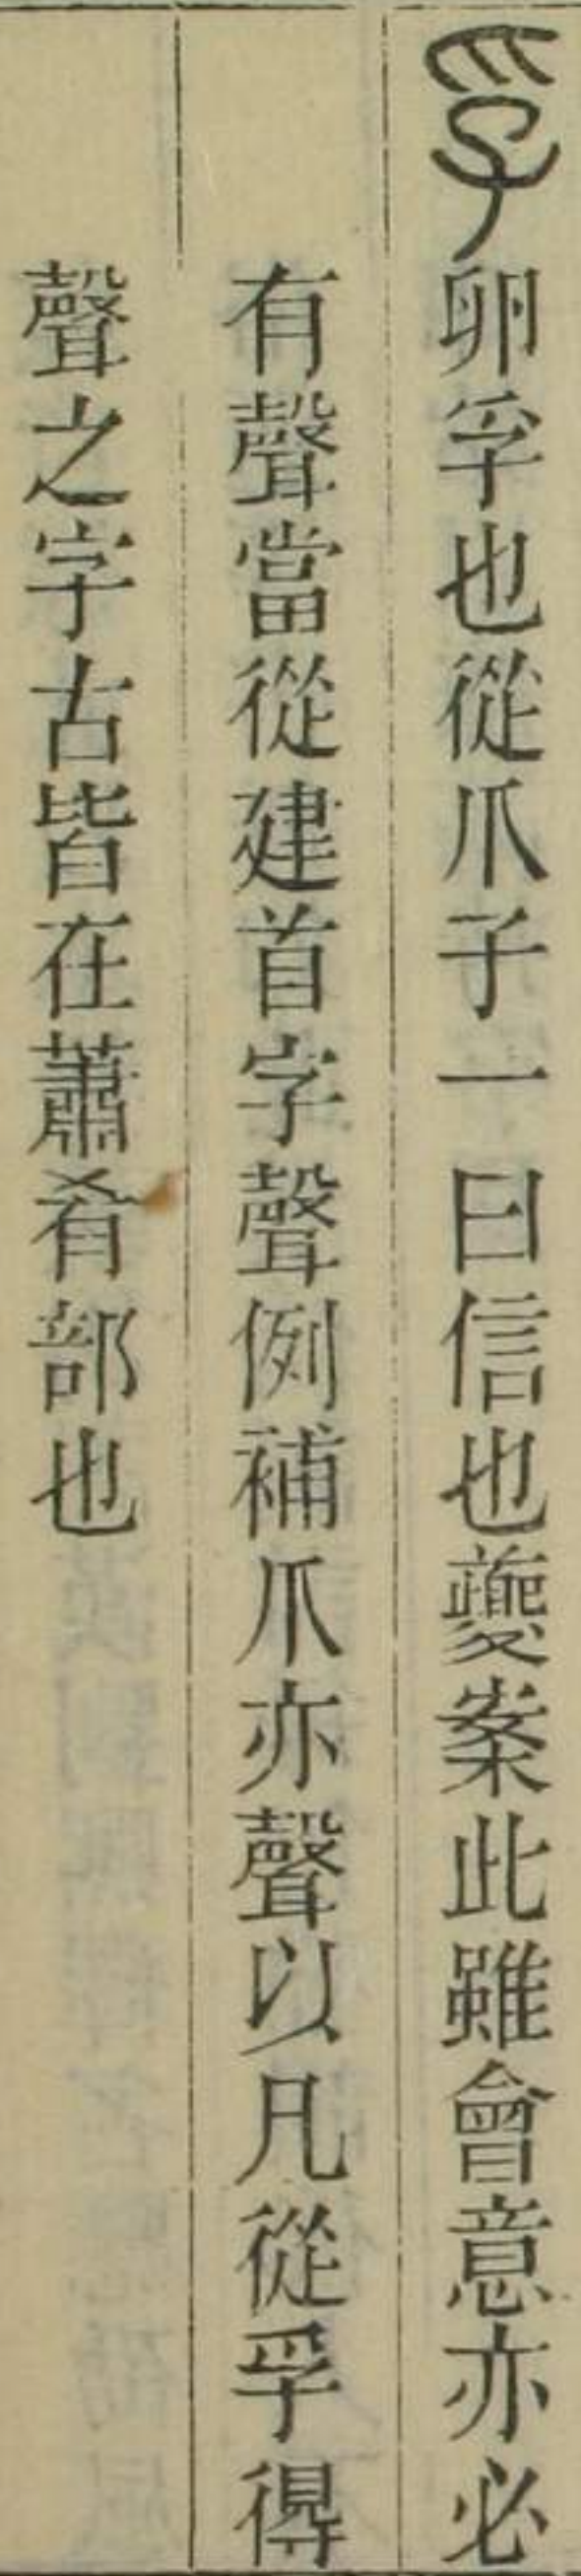 孚卵孚也從爪子一曰信也夔案此雖會意亦必
有聲當從建首字聲例補爪亦聲以凡從孚得
聲之字古皆在蕭肴部也